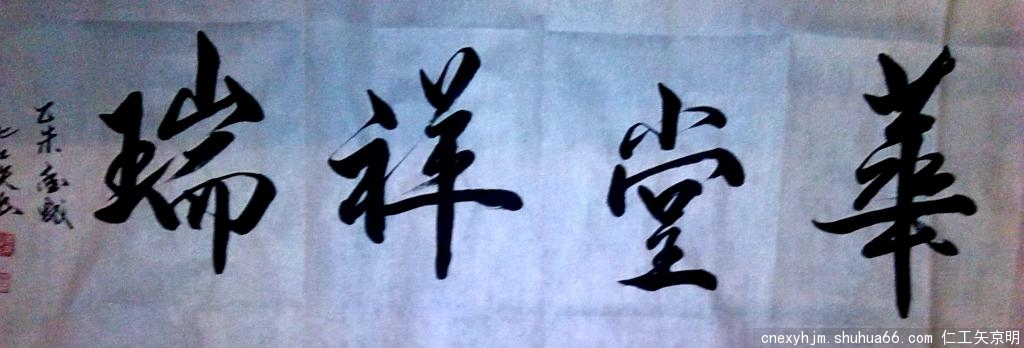 華堂祥瑞
乙未
cnexyhjm.shuhua66.com 仁工矢京明